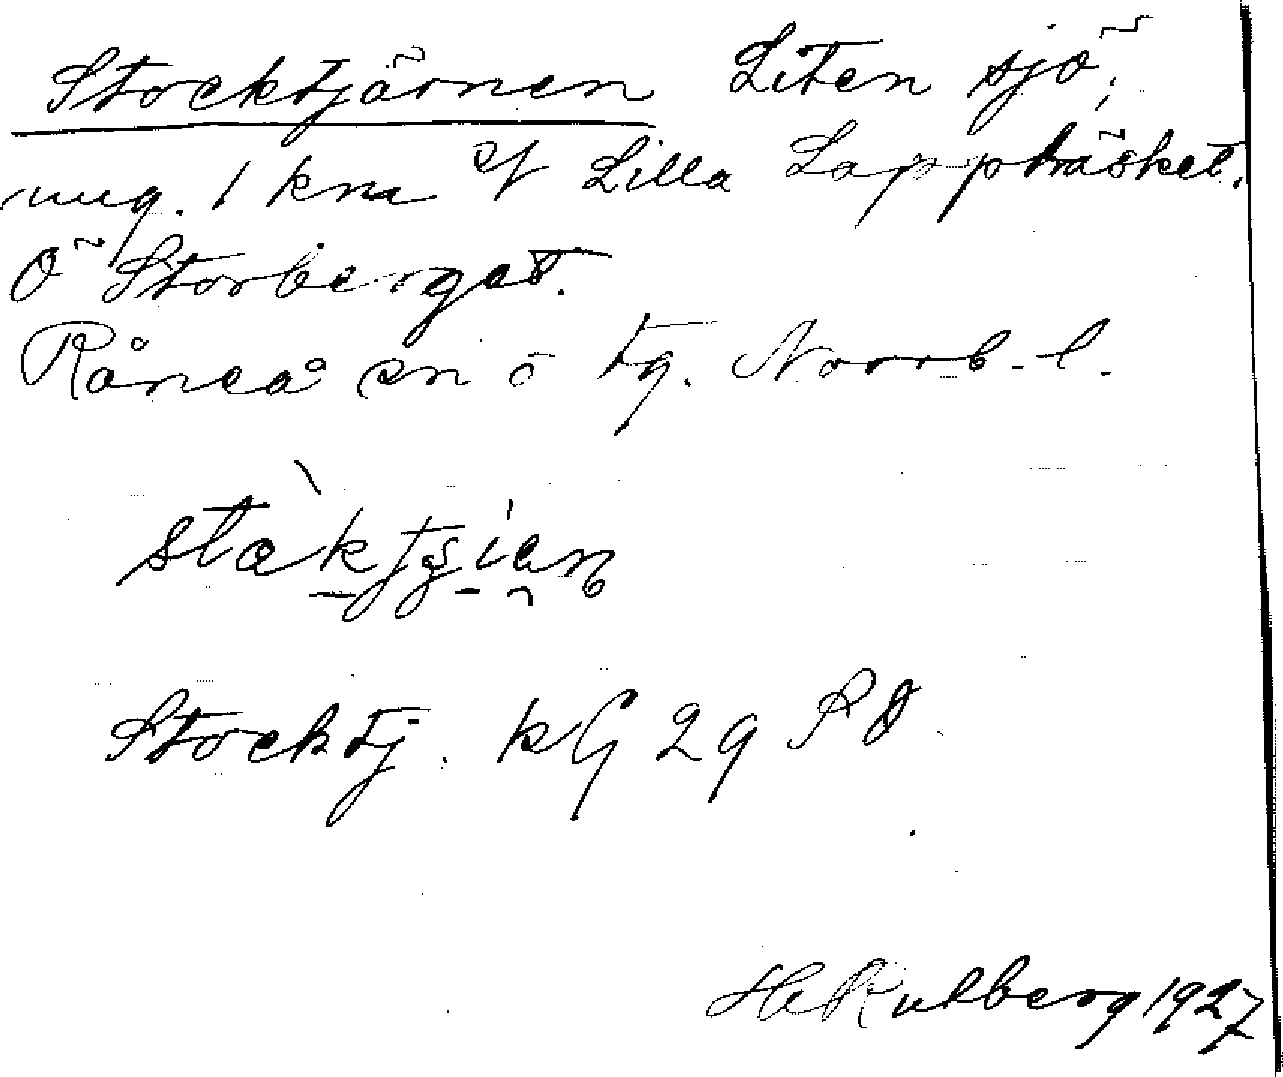 Stocktjärnen Liten sjö,
ung. 1 km Lilla Lappträsket.
Ö Storberget.
Råneå sn o tg. Norrb. l.
Stocktj. kG 29 SO
H Rutberg 1927